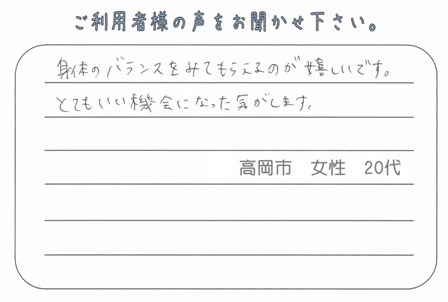 ご利用者様の声をお聞かせ下さい。
身体のバランスをみてもらえるのが嬉しいです。
とてもいい機会になった気がします。
高岡市　女性　20代